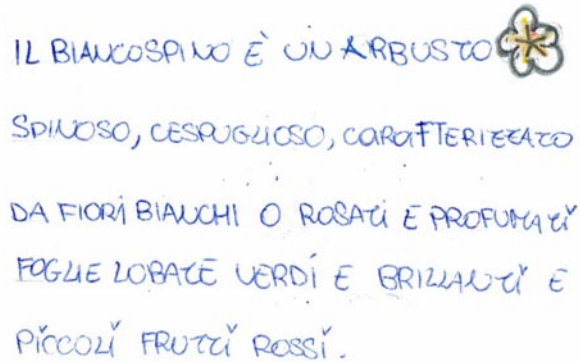 IL BIANCOSPINO È UN ARBUSTO
SPINOSO, CESPUGLIOSO, CARATTERIZZATO
DA FIORI BIANCHI O ROSATI E PROFUMATI
FOGLIE LOBATE VERDI E BRILLANTI E
PICCOLI FRUTTI ROSSI.